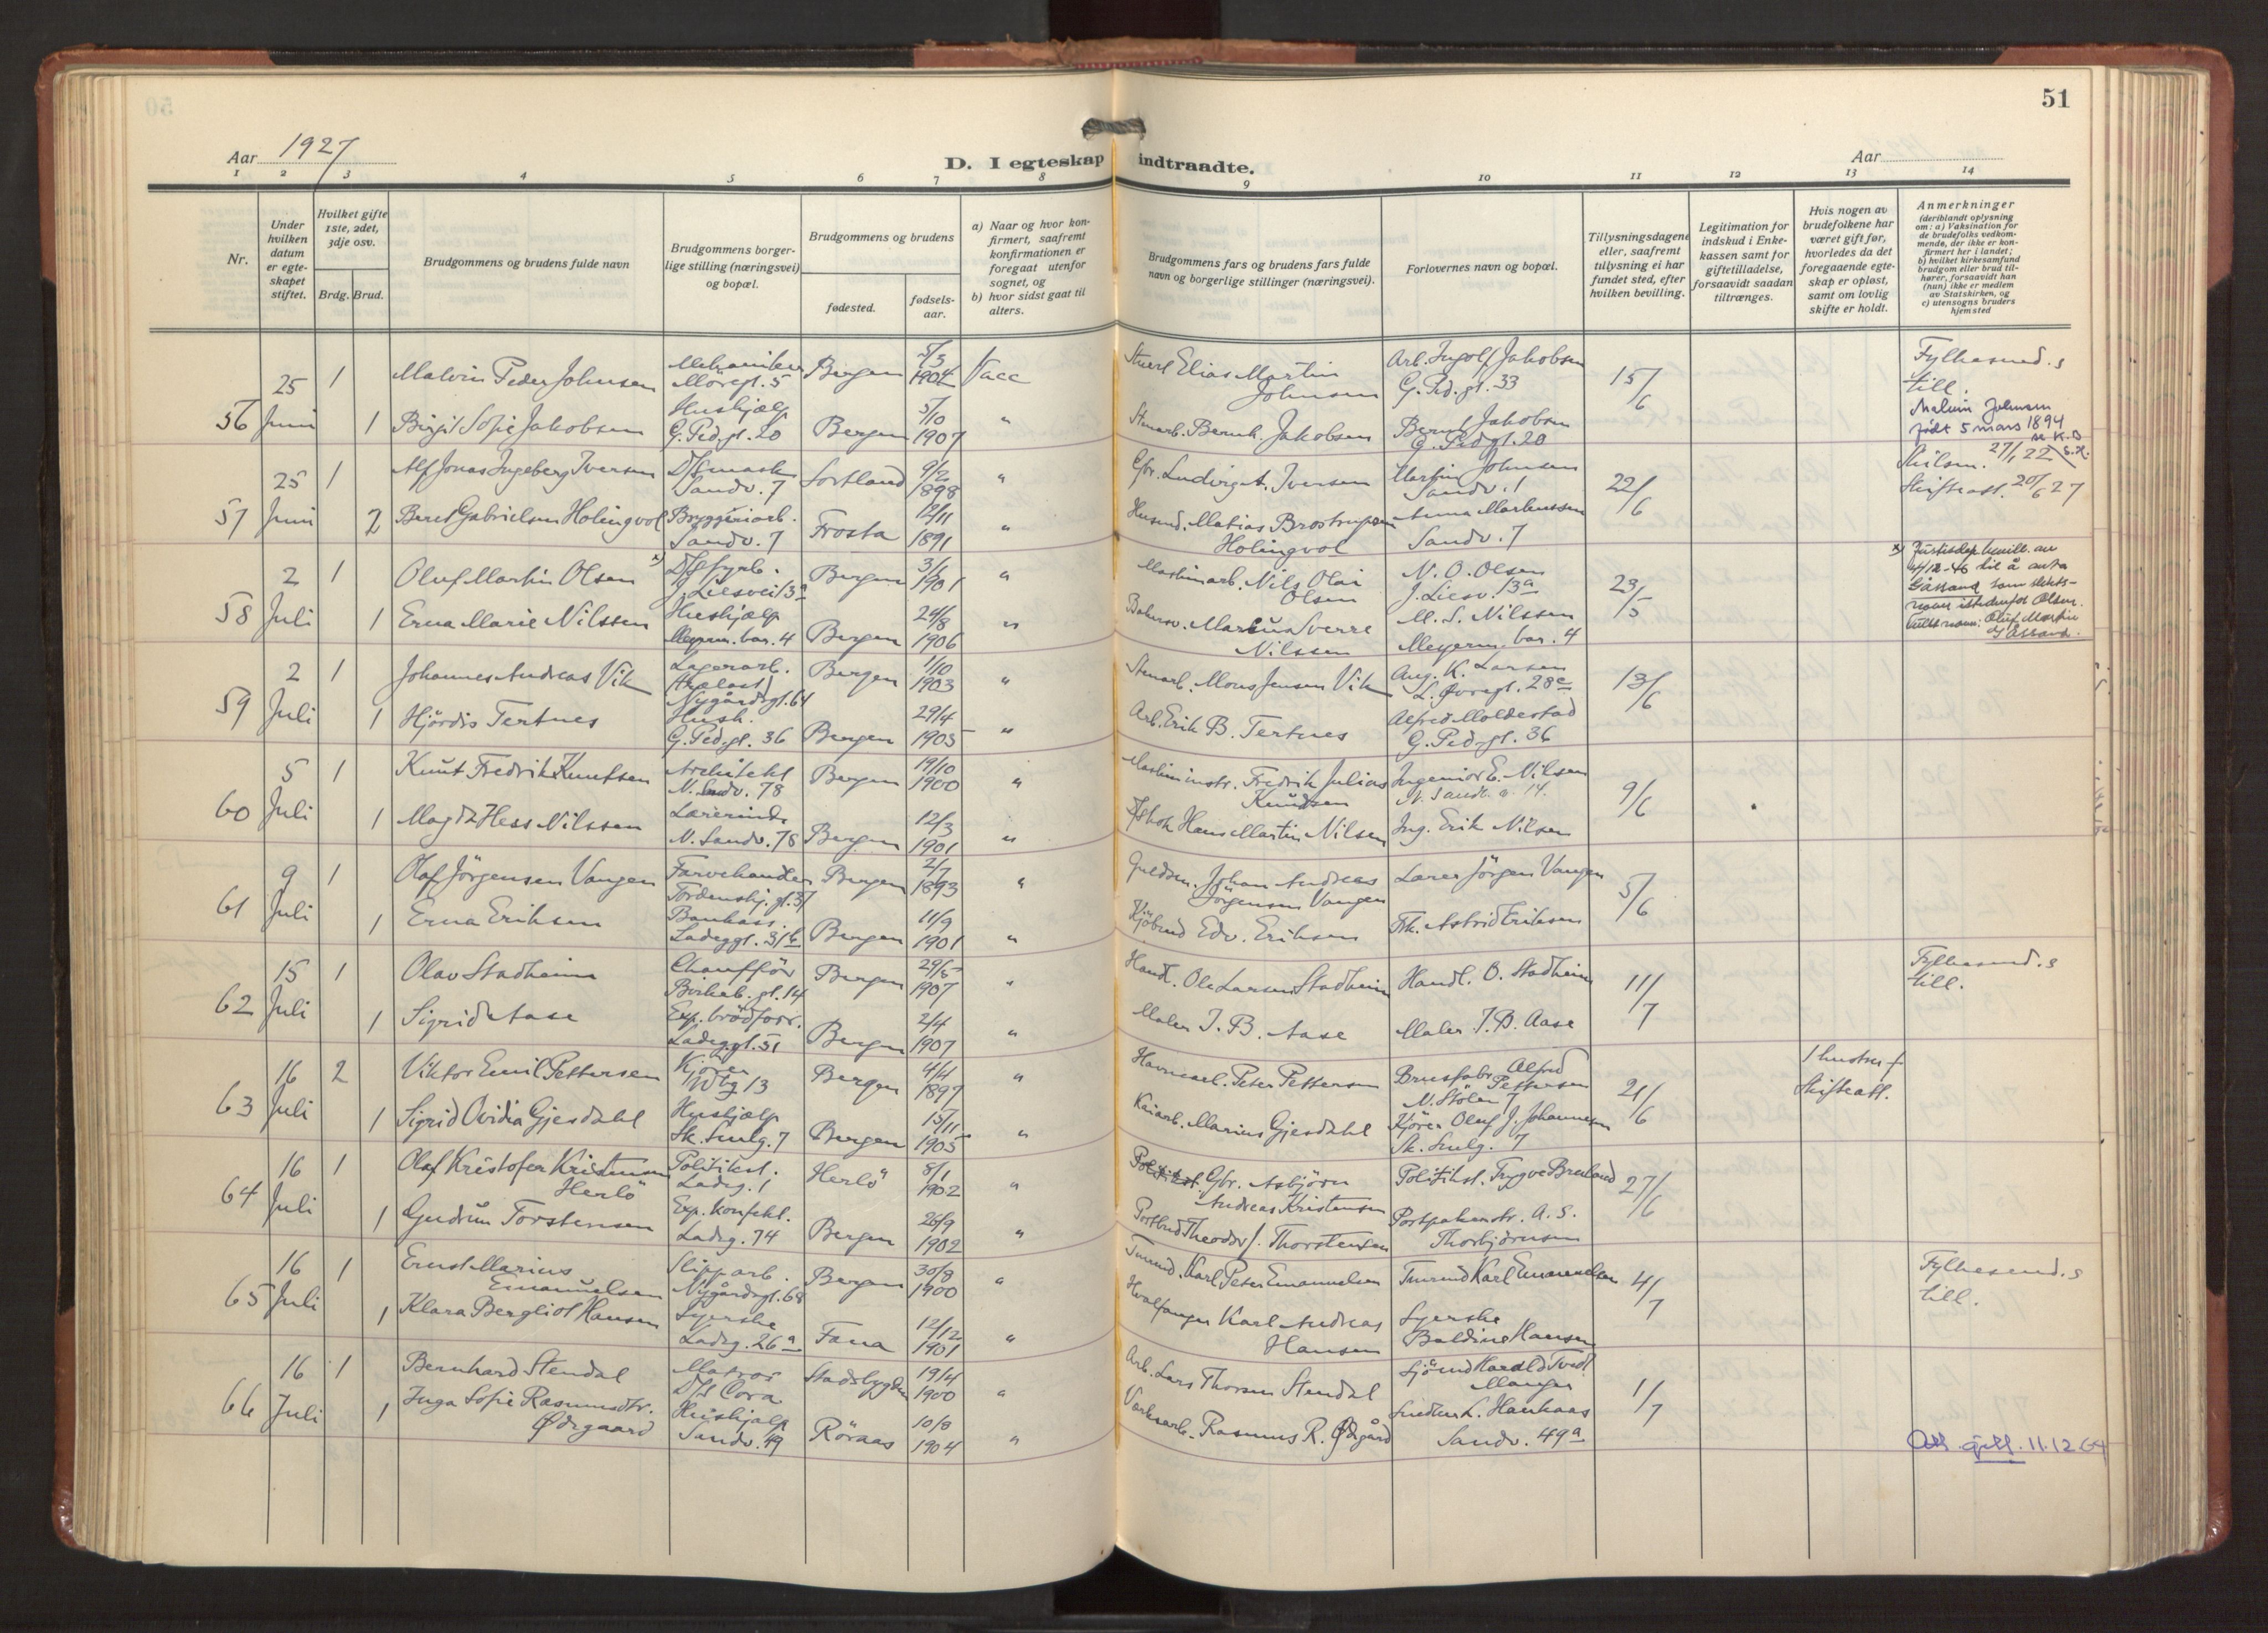 51
Aar 1927
D. I egteskap indtraadte.
Aar
1 2 3 4 5 6 7 8 9 10 11 12 13 14
Nr.
Under hvilken datum er egte-skapet stiftet.
Hvilket gifte 1ste, 2det, 3dje osv.
Brdg. Brud.
Brudgommens og brudens fulde navn
Brudgommens borger-lige stilling (næringsvei) og bopæl.
Brudgommens og brudens
fødested.
fødsels-aar.
a) Naar og hvor kon-firmert, saafremt konfirmationen er foregaat utenfor sognet, og
b) hvor sidst gaat til alters.
Brudgommens fars og brudens fars fulde navn og borgerlige stillinger (næringsvei).
Forlovernes navn og bopæl.
Tillysningsdagene eller, saafremt tillysning ei har fundet sted, efter hvilken bevilling.
Legitimation for indskud i Enke-kassen samt for giftetilladelse, forsaavidt saadan tiltrænges.
Hvis nogen av brudefolkene har været gift før, hvorledes da det foregaaende egte-skap er opløst, samt om lovlig skifte er holdt.
Anmerkninger (deriblandt oplysning om: a) Vaksination for de brudefolks vedkom-mende, der ikke er kon-firmert her i landet; b) hvilket kirkesamfund brudgom eller brud til-hører, forsaavidt han (hun) ikke er medlem av Statskirken, og c) utensogns bruders hjemsted
56 25 Juni 1 Malvin Peder Johnsen Mekaniker Möregt. 5 Bergen 5/3 1904 Vacc Stuert Elias Martin Johnsen Arb. Ingolf Jakobsen G. Ped. gt. 33 15/6 Fylkesmend.s till.
Malvin Johnsen født 5 mars 1894 se K.B
1 Birgit Sofie Jakobsen Hushjælp G. Ped. gt. 20 Bergen 5/10 1907 " Stenarb. Bernh. Jakobsen Bernt Jakobsen G. Ped gt. 20
57 25 Juni 1 Alf Jonas Ingeberg Iversen D/S mask Sandv. 7 Sortland 9/2 1898 " Gbr. Ludvig A. Iversen Martin Johnsen Sandv. 1 22/6 Skilsm. 27/1 22 Skifteatt. 20/6 27
2 Beret Gabrielsen Holingvol Bryggeriarb. Sandv. 7 Frosta 12/11 1891 " Husmd. Matias Brostrupsen Holingvol Anna Markussen Sandv. 7
58 2 Juli 1 Oluf Martin Olsen x) D/S fyrb. J. Liesvei 13a Bergen 3/1 1901 " Maskinarb. Nils Olai Olsen N. O. Olsen J. Liesv. 13a 23/5
x) Justisdep. bevill. av 4/12-46 til å anta Gåssand som slekts-navn istedenfor Olsen. Fullt navn: Oluf Martin Gåssand.
1 Erna Marie Nilssen Hushjælp Meyerm. bar. 4 Bergen 24/8 1906 " Marius Sverre Nilssen M. S. Nilssen Meyerm. bar. 4
59 2 Juli 1 Johannes Andreas Vik Lagerarb. Nygårdsgt. 64 Bergen 1/10 1903 " Stenarb. Mons Jensen Vik Aug. K. Larsen L. Øvregt. 28c 13/6
1 Hjördis Tertnes Hush. G. Ped. gt. 36 Bergen 29/4 1905 " Arb. Erik B. Tertnes Alfred Moldestad G. Ped. gt. 36
60 5 Juli 1 Knut Fredrik Knutsen Architekt N. Sandv. 78 Bergen 19/10 1900 " Maskininstr. Fredrik Julius Knudsen Ingeniør E. Nilsen 9/6
1 Magda Hess Nilssen Lærerinde N. Sandv. 78 Bergen 12/3 1901 " Hans Martin Nilsen Ing. Erik Nilsen
61 9 Juli 1 Olaf Jörgensen Vangen Farvehandler Tordenskj. gt. 37 Bergen 2/7 1893 " Guldsm. Johan Andreas Jörgensen Vangen Lærer Jörgen Vangen 5/6
1 Erna Eriksen Bankass. Ladeggt. 31b Bergen 11/9 1901 " Kjöbmd Edv. Eriksen Frk. Astrid Eriksen
62 15 Juli 1 Olav Stadheim Chaufför Birkeb. gt. 14 Bergen 29/5 1907 " Handl. Ole Larsen Stadheim Handl. O. Stadheim 11/7 Fylkesmend.s till.
1 Sigrid Aase Exp. brödforr. Ladeggt. 51 Bergen 2/4 1907 " Maler J. B. Aase Maler J. B. Aase
63 16 Juli 2 Viktor Emil Pettersen Kjörer 13 Bergen 4/4 1897 " Havnearb. Peter Pettersen Brusfabr. Alfred Pettersen N. Stölen 7 21/6 1 hustru † Skifteatt.
1 Sigrid Ovidia Gjesdahl Hushjælp Sk. Smlg. 7 Bergen 15/11 1905 " Kaiarb. Marius Gjesdahl Kjörer Oluf J. Johannesen Sk. Smlg. 7
64 16 Juli 1 Olaf Kristofer Kristensen Herlö Politikst. Ladeg. 1 Herlö 8/1 1902 " Gbr. Asbjörn Andreas Kristensen Politikst. Trygve Breiland 27/6
1 Gudrun Torstensen Exp. konfekt. Ladeg. 74 Bergen 26/9 1902 " Postbud Theodor J. Thorstensen Postpakmstr. A. S. Thorbjörnsen
65 16 Juli 1 Ernst Marius Emanuelsen Slipparb. Nygårdsgt. 68 Bergen 30/8 1900 " Tmmd. Karl Peter Emanuelsen Tmrmd Karl Emanuelsen 4/7 Fylkesmend.s till.
1 Klara Bergliot Hansen Syerske Ladeg. 26a Fana 12/12 1901 " Hvalfanger Karl Andreas Hansen Syerske Baldine Hansen
66 16 Juli 1 Bernhard Stendal Matros D/S Cora Stadsbygden 19/4 1900 " Arb. Lars Thorsen Stendal Sjömd Harald Tvedt Manger 1/7
1 Inga Sofie Rasmusdtr. Ødegaard Hushjælp Sandv. 49 Röraas 10/8 1904 " Verksarb. Rasmus R. Ødegård Snedker L. Haukaas Sandv. 49a
Att. gitt. 11.12.64